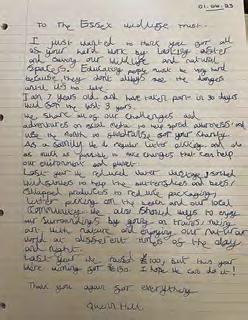 01.06.23
To The Essex wildlife trust.
I just wanted to thank you for all
of your hard work by looking after
and saving our wildlife and natural
spaces. Educating people must be very hard
because they don't always see the danger
until it's too late.
I am 7 years old and have taken part in 30 days
wild for the last 3 years.
We share all our challenges and
adventures on social media to help spread awareness and
use the month to fundraise for your charity.
As a family we do regular litter picking and do
as much as possible to make changes that can help
our environment and planet.
Last year we reduced water usage,
wildflowers to help the butterflies and bees,
swapped products to reduce packaging,
litter picking on the beach and our local
community. We also found ways to enjoy
our surroundings by going on trails, making
art with nature and enjoying our natural
world at different times of the day
and night.
Last year we raised £100, but this year
we're aiming for £150. I hope we can do it!
Thank you again for everything